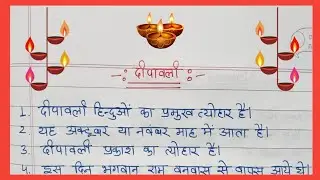 दीपावली
1. दीपावली हिन्दुओं का प्रमुख त्योहार है।
2. यह अक्टूबर या नवंबर माह में आता है।
3. दीपावली प्रकाश का त्योहार है।
4. इस दिन भगवान राम वनवास से वापस आये थे।